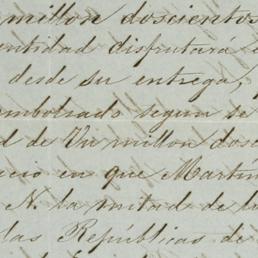 millon doscientos
entidad disfrutará
desde su entrega,
embolsado segun se
d de Un millon dosc
cio en que Martin
N. la mitad de l
las Repúblicas de